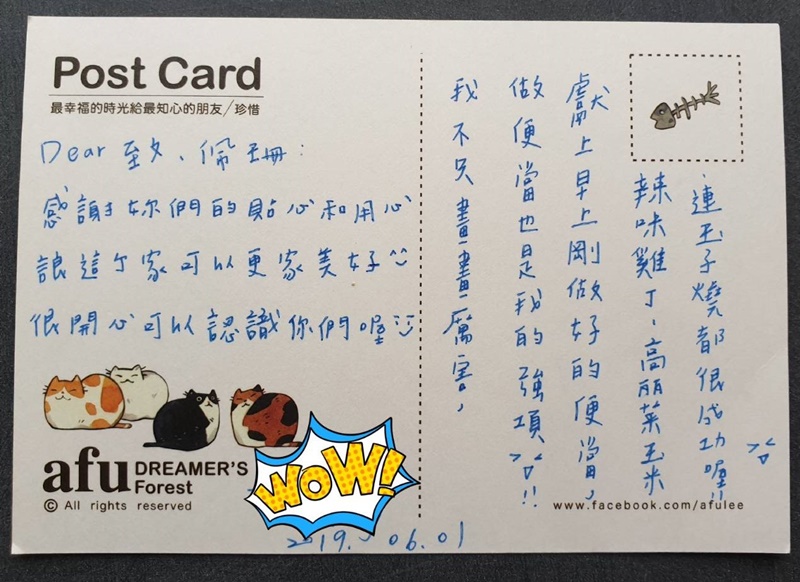 Post Card
最幸福的時光給最知心的朋友/珍惜
Dear 至文、佩珊:
感謝妳們的貼心和用心
誏這个家可以更家美好
很開心可以認識你們喔
afu DREAMER'S Forest
© All rights reserved
WOW!
2019. 06.01
我不只畫畫厲害,
做便當也是我的強項 >▽<!!
獻上早上剛做好的便當,
辣味雞丁、高丽菜玉米
連玉子燒都很成功喔!! >▽<
www.facebook.com/afulee